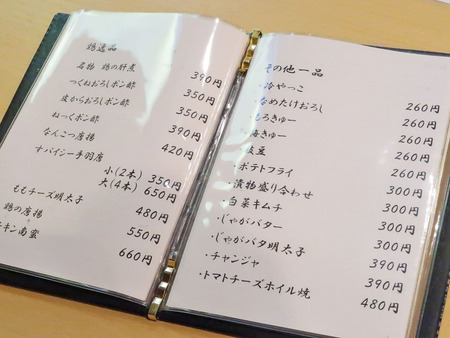 鶏逸品
名物 鶏の肝煮 390円
つくねおろしポン酢 350円
皮からおろしポン酢 350円
ねっくポン酢 390円
なんこつ唐揚 420円
スパイシー手羽唐
小(2本) 350円
大(4本) 650円
ももチーズ明太子 480円
鶏の唐揚 550円
チキン南蛮 660円
その他一品
・冷やっこ 260円
・なめたけおろし 260円
もろきゅー 260円
梅きゅー 260円
枝豆 260円
・ポテトフライ 300円
・漬物盛り合わせ 300円
・白菜キムチ 300円
・じゃがバター 300円
・じゃがバタ明太子 390円
・チャンジャ 390円
・トマトチーズホイル焼 480円